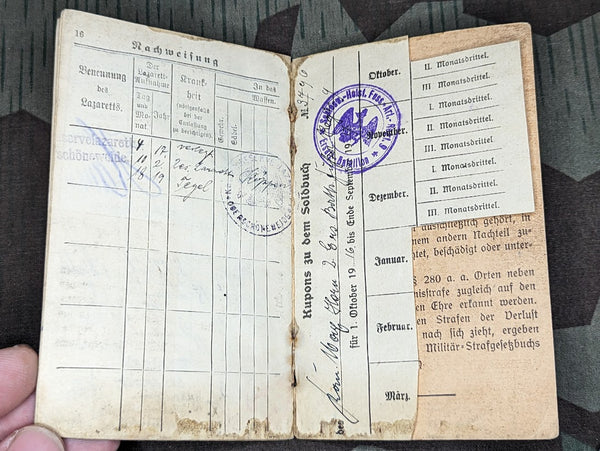 16
Nachweisung
Benennung des Lazaretts.
Der Lazarett-Aufnahme
Tag und Monat
Jahr
Krankheit
(nötigenfalls bei der Entlassung zu berichtigen)
In das
Waffen.
Gewehr.
Säbel.
servelazarett
schöneweide
4 17
11 2
18 19
Tegel
OBERSCHÖNEWEIDE
Kupons zu dem Soldbuch
№ 3790
für 1. Oktober 1916 bis Ende September 19
des
Kan. Max Horn 2
Schlesw.-Holst. Fuss-Art. Rgt. 9
Bataillon
Oktober.
November.
Dezember.
Januar.
Februar.
März.
II. Monatsdrittel.
III. Monatsdrittel.
I. Monatsdrittel.
II. Monatsdrittel.
III. Monatsdrittel.
I. Monatsdrittel.
II. Monatsdrittel.
III. Monatsdrittel.
ausschließlich gehört, in
nem andern Nachteil zu-
tet, beschädigt oder unter-
§ 280 a. a. Orten neben
nisstrafe zugleich auf den
en Ehre erkannt werden.
en Strafen der Verlust
nach sich zieht, ergeben
Militär-Strafgesetzbuchs